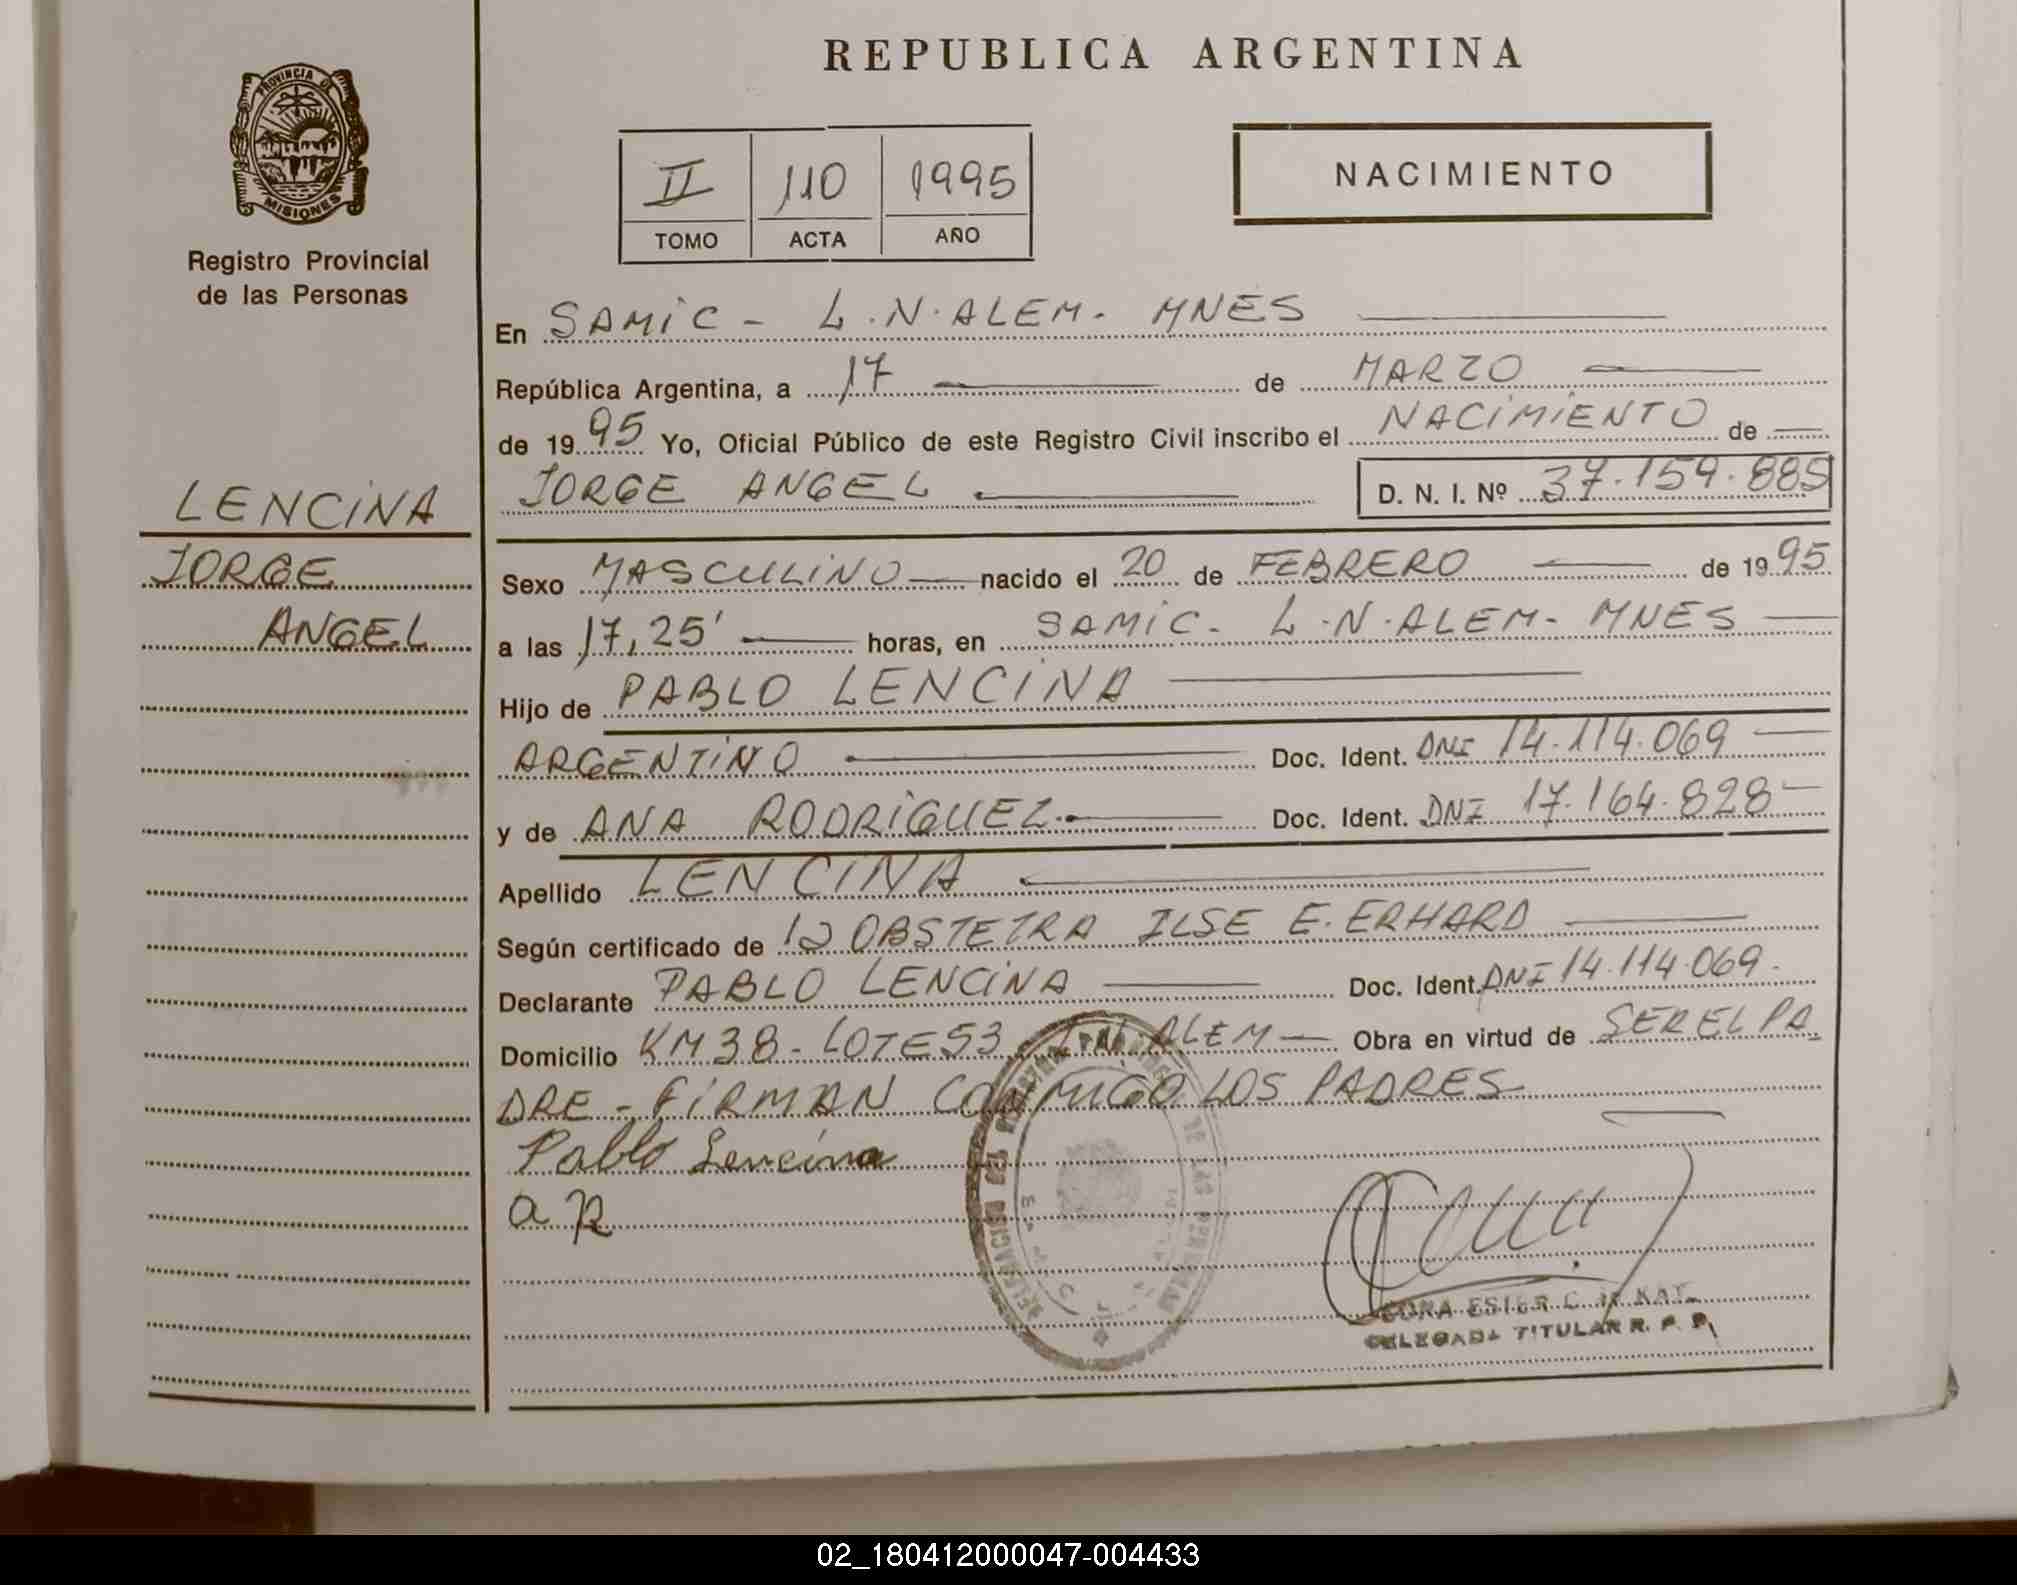 REPUBLICA ARGENTINA
PROVINCIA DE
MISIONES
Registro Provincial
de las Personas
II 110 1995
TOMO ACTA AÑO
NACIMIENTO
En SAMIC - L.N. ALEM. MNES
República Argentina, a 17 de MARZO
de 1995 Yo, Oficial Público de este Registro Civil inscribo el NACIMIENTO de
JORGE ANGEL D. N. I. Nº 37.159.885
LENCINA
JORGE
ANGEL
Sexo MASCULINO nacido el 20 de FEBRERO de 1995
a las 17,25' horas, en SAMIC - L.N. ALEM - MNES
Hijo de PABLO LENCINA
ARGENTINO Doc. Ident. DNI 14.114.069
y de ANA RODRIGUEZ. Doc. Ident. DNI 17.164.828
Apellido LENCINA
Según certificado de OBSTETRA ILSE E. ERHARD
Declarante PABLO LENCINA Doc. Ident. DNI 14.114.069.
Domicilio KM 38 - LOTE 53 ALEM Obra en virtud de SER EL PA
DRE - FIRMAN CONMIGO LOS PADRES
Pablo Lencina
a R
ESTER C.
DELEGADA TITULAR R. P. P.
02_180412000047-004433